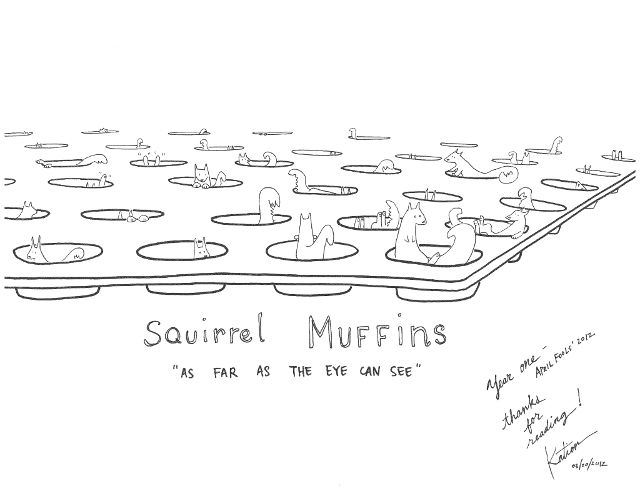 Squirrel Muffins
"AS FAR AS THE EYE CAN SEE"
Year one -
APRIL FOOLS' 2012
thanks
for
reading!